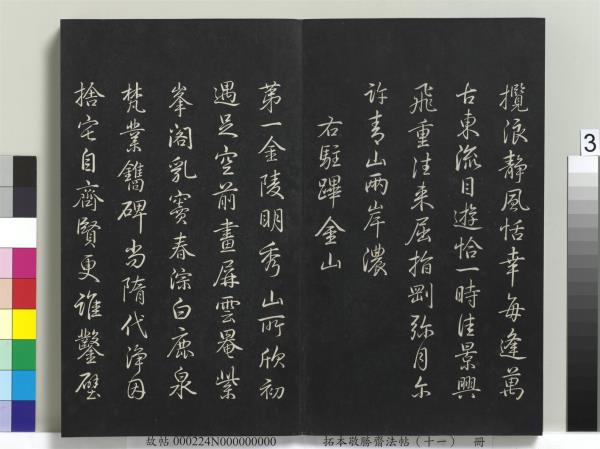 攬浪靜風恬幸每逢萬
古東流目遊恰一時佳景興
飛重洼來屈指剛弥月尓
許青山兩岸濃
右駐蹕金山
第一金陵明秀山所欣初
遇足空前畫屏雲罨紫
峯閣乳竇春淙白鹿泉
梵業鐫碑尚隋代淨因
捨宅自齊賢更誰鑿壁
3
故帖 000224N000000000 拓本敬勝齋法帖（十一） 冊